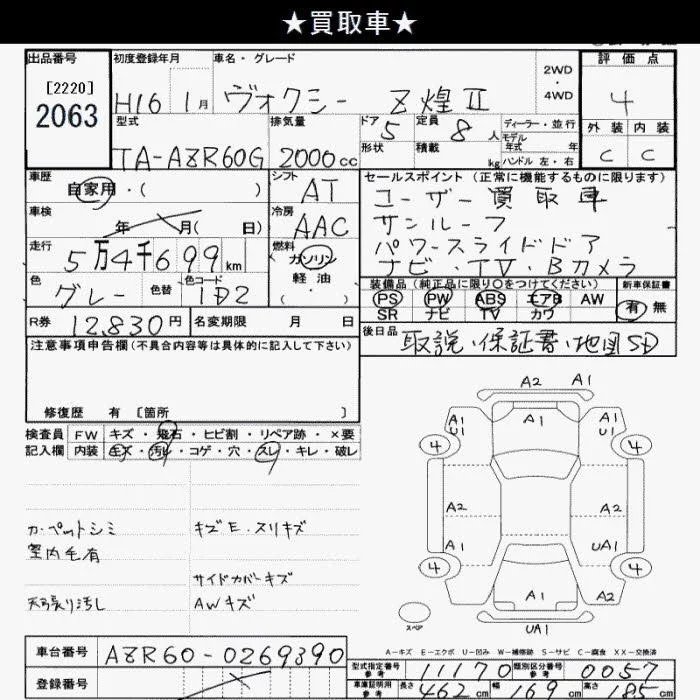 ★買取車★
出品番号 初度登録年月 車名・グレード 2WD・4WD 評価点
[2220]
2063 H16 1月 ヴォクシー Z煌II 4
型式 排気量 ドア 5 定員 8人 ディーラー・並行 外装 内装
形状 積載 kg モデル年式 年 ハンドル 左・右
TA-AZR60G 2000cc C C
車歴 自家用・( ) シフト AT
セールスポイント(正常に機能するものに限ります)
ユーザー買取車
サンルーフ
パワースライドドア
ナビ・TV・Bカメラ
車検 年 月( 日) 冷房 AAC
走行 5万4千699km 燃料 ガソリン
軽油・( )
色 グレー 色替 色コード 1D2
装備品(純正品に限り○をつけてください) 新車保証書
PS PW ABS エアB AW 有 無
SR ナビ TV カワ
R券 12,830円 名変期限 月 日
後日品 取説、保証書、地図SD
注意事項申告欄(不具合内容等は具体的に記入して下さい)
修復歴 有 [箇所 ]
検査員 FW キズ・飛石・ヒビ割・リペア跡・×要
記入欄 内装 キズ・汚れ・コゲ・穴・スレ・キレ・破レ
カーペットシミ キズE・スリキズ
室内毛有
サイドカバーキズ
天張り汚し AWキズ
A2 A1
A1 U1 A1 A1 U1
4 4
A2 A2
A1 UA1
4 4
A1 A1 A2
スペア UA1
A-キズ E-エクボ U-凹み W-補修跡 S-サビ C-腐食 XX-交換済
車台番号 AZR60-0269390
型式指定番号 参考 11170 類別区分番号 参考 0057
登録番号
車庫証明用 参考 長さ 462cm 幅 169cm 高さ cm